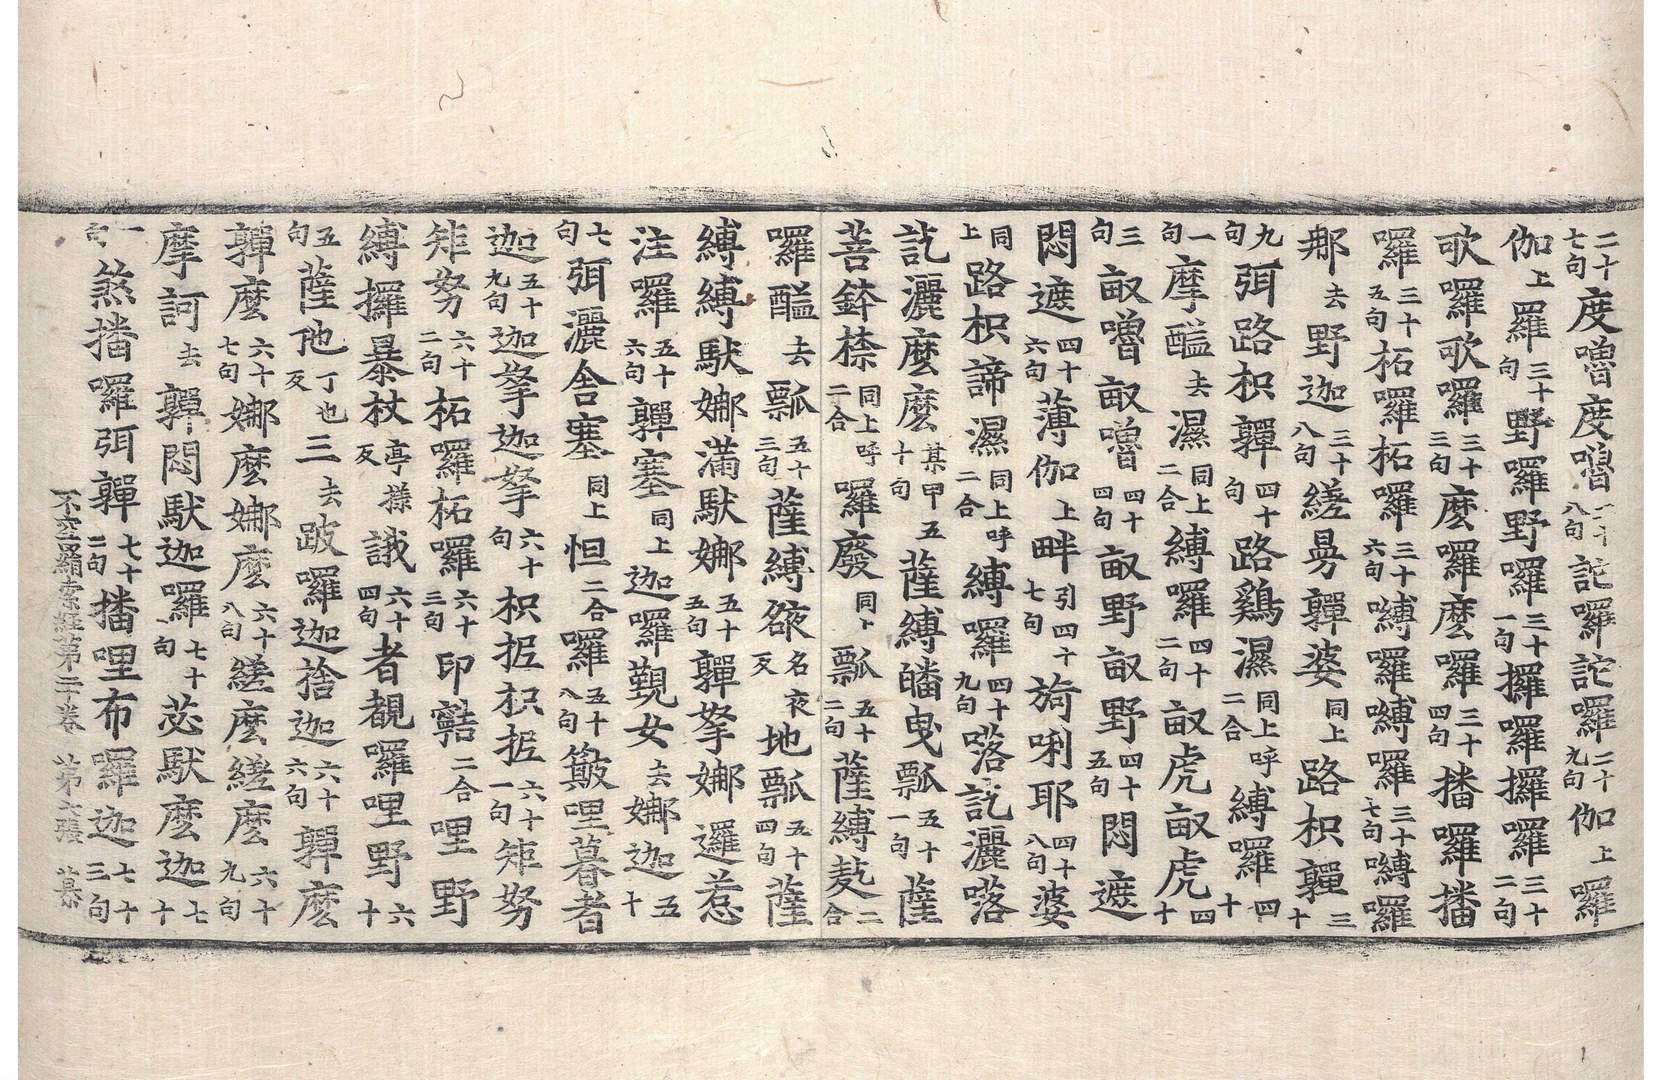 二十七句度嚕度嚕二十八句詑囉詑囉二十九句伽上囉
伽上羅三十句野囉野囉三十一句攞囉攞囉三十二句
歌囉歌囉三十三句麽囉麽囉三十四句播囉播
囉三十五句柘囉柘囉三十六句嚩囉嚩囉三十七句嚩囉
那去野迦三十八句縒曼亸婆同上路枳亸三十
九句弭路枳亸四十句路鷄濕同上呼二合嚩囉四十
一句摩醯去濕同上二合嚩囉四十二句畝虎畝虎四十
三句畝嚕畝嚕四十四句畝野畝野四十五句悶遮
悶遮四十六句薄伽上畔引四十七句旖唎耶四十八句婆
同上路枳諦濕同上呼二合嚩囉四十九句㗚訖灑㗚
訖灑麽麽某甲五十句薩縛皤曳瓢五十一句薩
菩鉢㮈同上呼二合囉廢同上瓢五十二句薩縛㪍二合
囉醯去瓢五十三句薩縛名夜反地瓢五十四句薩
縛縛馱娜滿馱娜五十五句亸拏娜邏惹
注囉五十六句亸塞同上迦囉覲女去娜迦五十
七句弭灑舍塞同上怛二合囉五十八句簸哩暮者
迦五十九句迦拏迦拏六十句枳抳枳抳六十一句矩努
矩努六十二句柘囉柘囉六十三句印二合哩野
縛攞暴杖亭樣反誐六十四句者覩囉哩野六十
五句薩他丁也反三去跛囉迦捨迦六十六句亸麽
亸麽六十七句娜麽娜麽六十八句縒麽縒麽六十九句
摩訶去亸悶馱迦囉七十句苾馱麽迦七十
一句煞播囉弭亸七十二句播哩布囉迦七十三句
不空羂索經第二十卷 第六張 慕